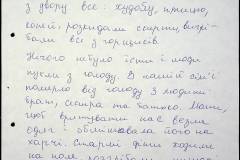 з двору все: худобу, птицю,
коней; розкидали скирти, вигрі-
бали все з горшків.
Нічого не було їсти і люди
пухли з голоду. В нашій сім'ї
померло від голоду 3 людини
брат, сестра та батько. Мати,
щоб врятувати нас везла
одяг і обмінювала його на
харчі. Старші діти ходили
на поле